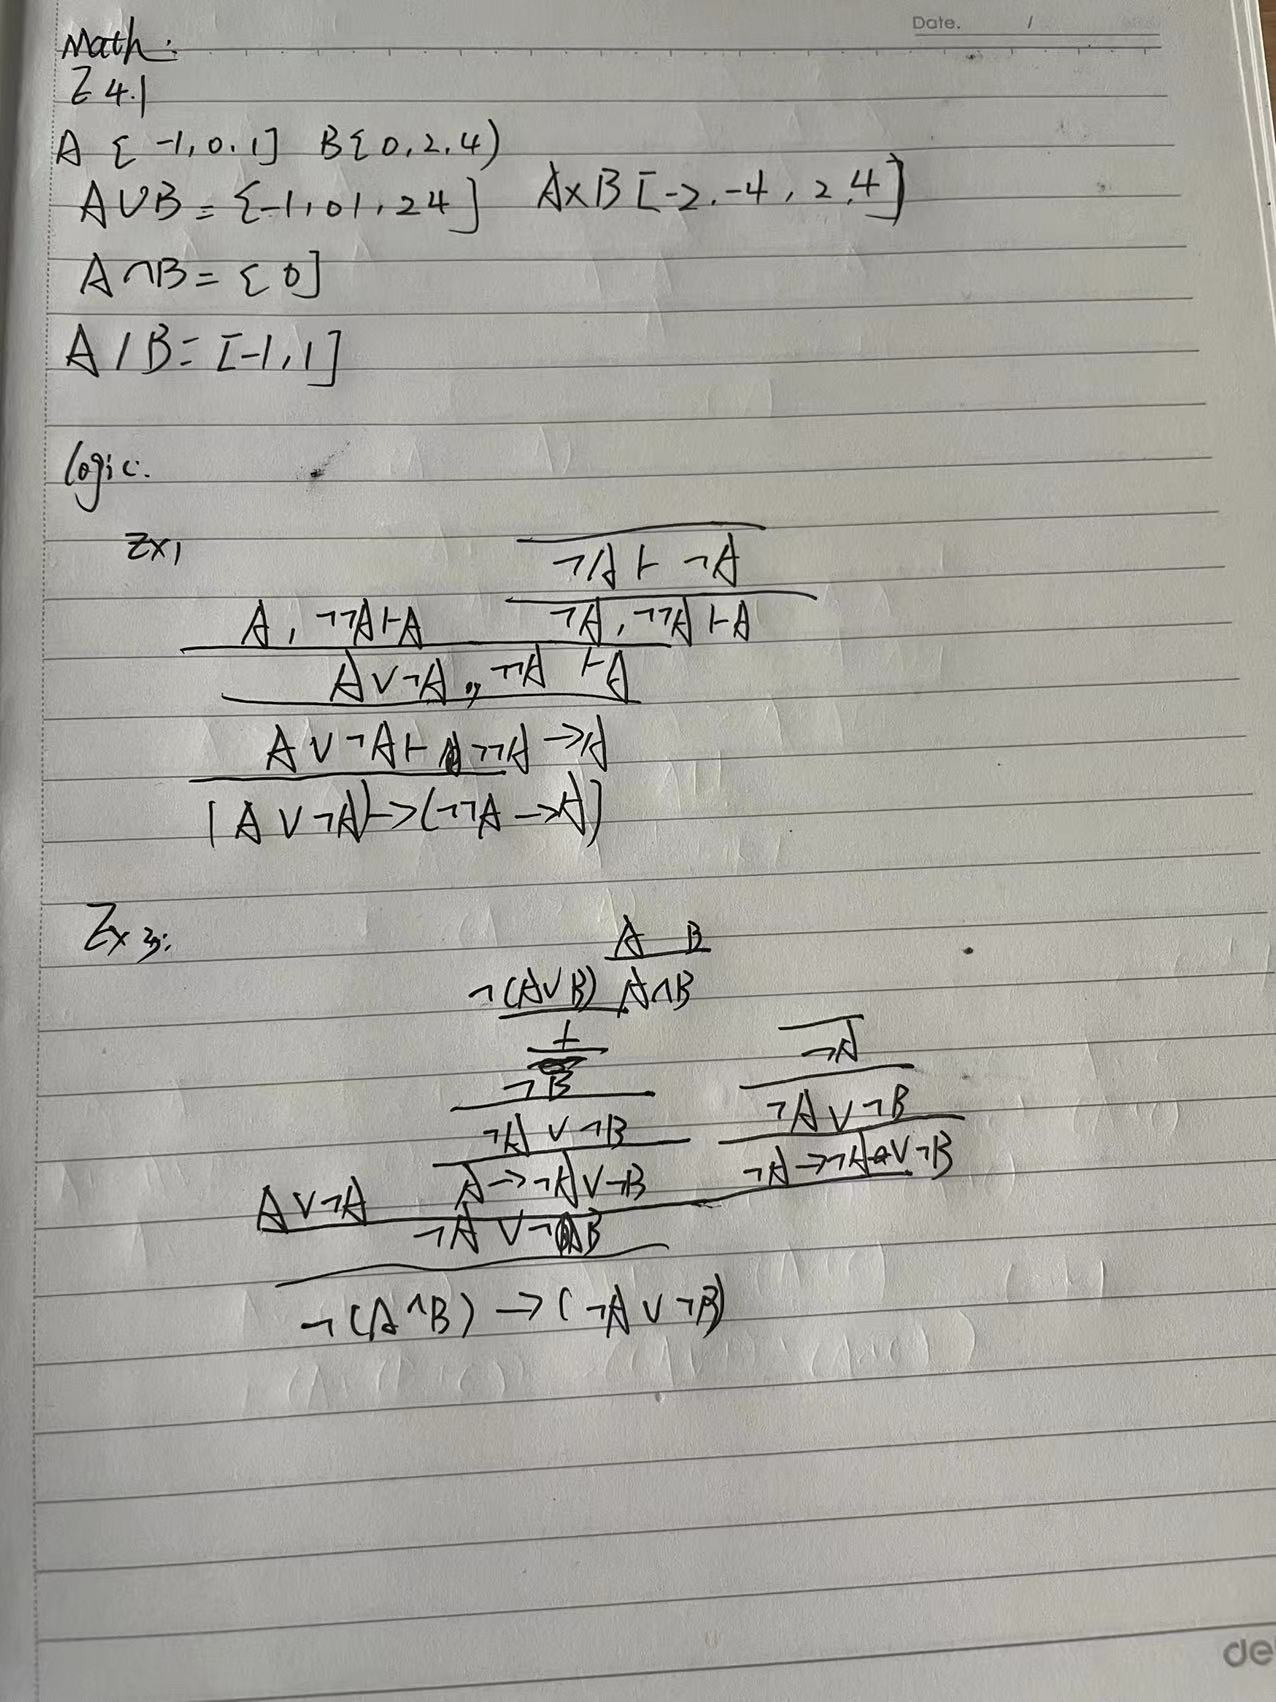 Date. /
Math:
Z 4.1
A { -1, 0. 1] B{ 0, 2, 4)
A∪B = {-1, 01, 24] A×B [-2. -4, 2, 4]
A∩B = { 0]
A / B = [-1, 1]
logic.
Zx1
¬A ⊢ ¬A
A, ¬¬A⊢A ¬A, ¬¬A ⊢A
A∨¬A,, ¬¬A ⊢A
A∨¬A⊢ ¬¬A →A
(A∨¬A)→(¬¬A→A)
Zx 3:
A B
¬(A∨B) A∧B
⊥ ¬A
¬B
¬A∨¬B ¬A∨¬B
A∨¬A A→¬A∨¬B ¬A→¬A∨¬B
¬A∨¬B
¬(A∧B) →(¬A∨¬B)
de